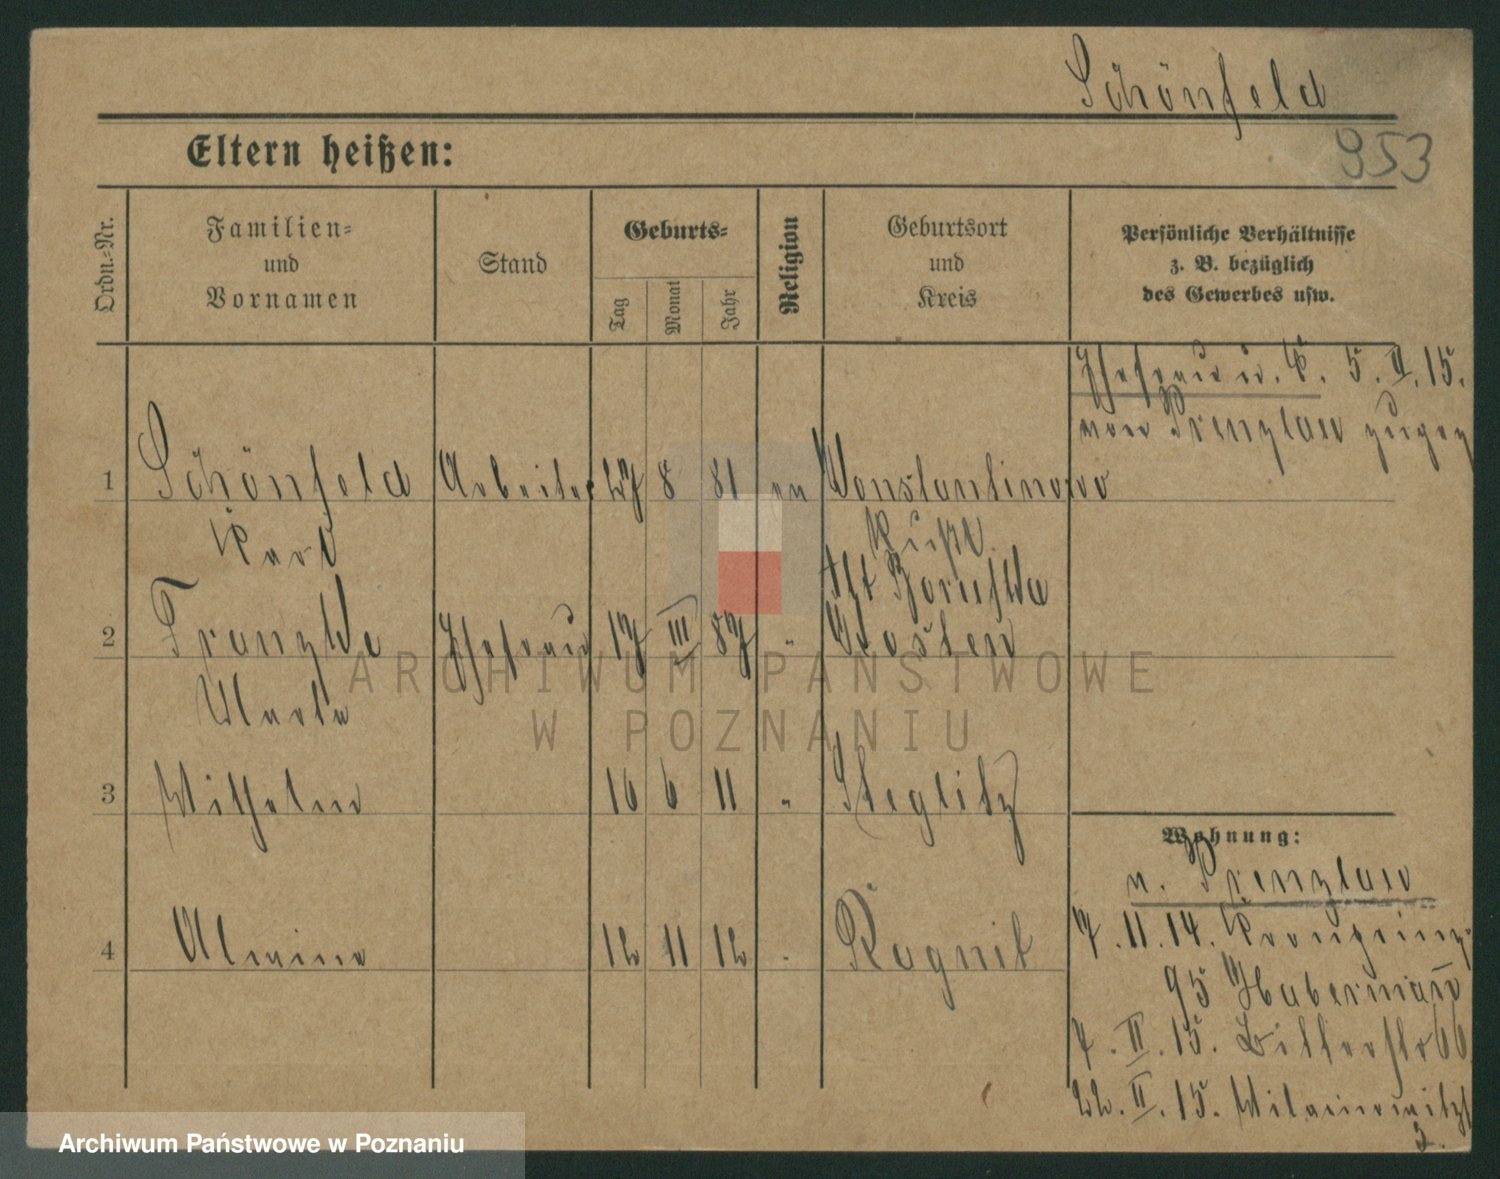 Schönfeld
953
Eltern heißen:
Ordn.-Nr.
Familien-
und
Vornamen
Stand
Geburts-
Tag
Monat
Jahr
Religion
Geburtsort
und
Kreis
Persönliche Verhältnisse
z. B. bezüglich
des Gewerbes usw.
Ehefrau u. K. 5. II. 15.
von Prenzlau zugez
1 Schönfeld Arbeiter 27 8 81 ev Konstantinowo
Karl
2 Franzke Ehefrau 17 III 87 "
Marta
3 Wilhelm 16 6 11 " Steglitz
4 Almine 12 11 12 " Ragnit
Wohnung:
n. Prenzlau
7. 11. 14. Kronprinz-
95 Habermann
7. II. 15. Bitterstr 66
22. II. 15. Wilamowitzst
2.
ARCHIWUM PAŃSTWOWE
W POZNANIU
Archiwum Państwowe w Poznaniu